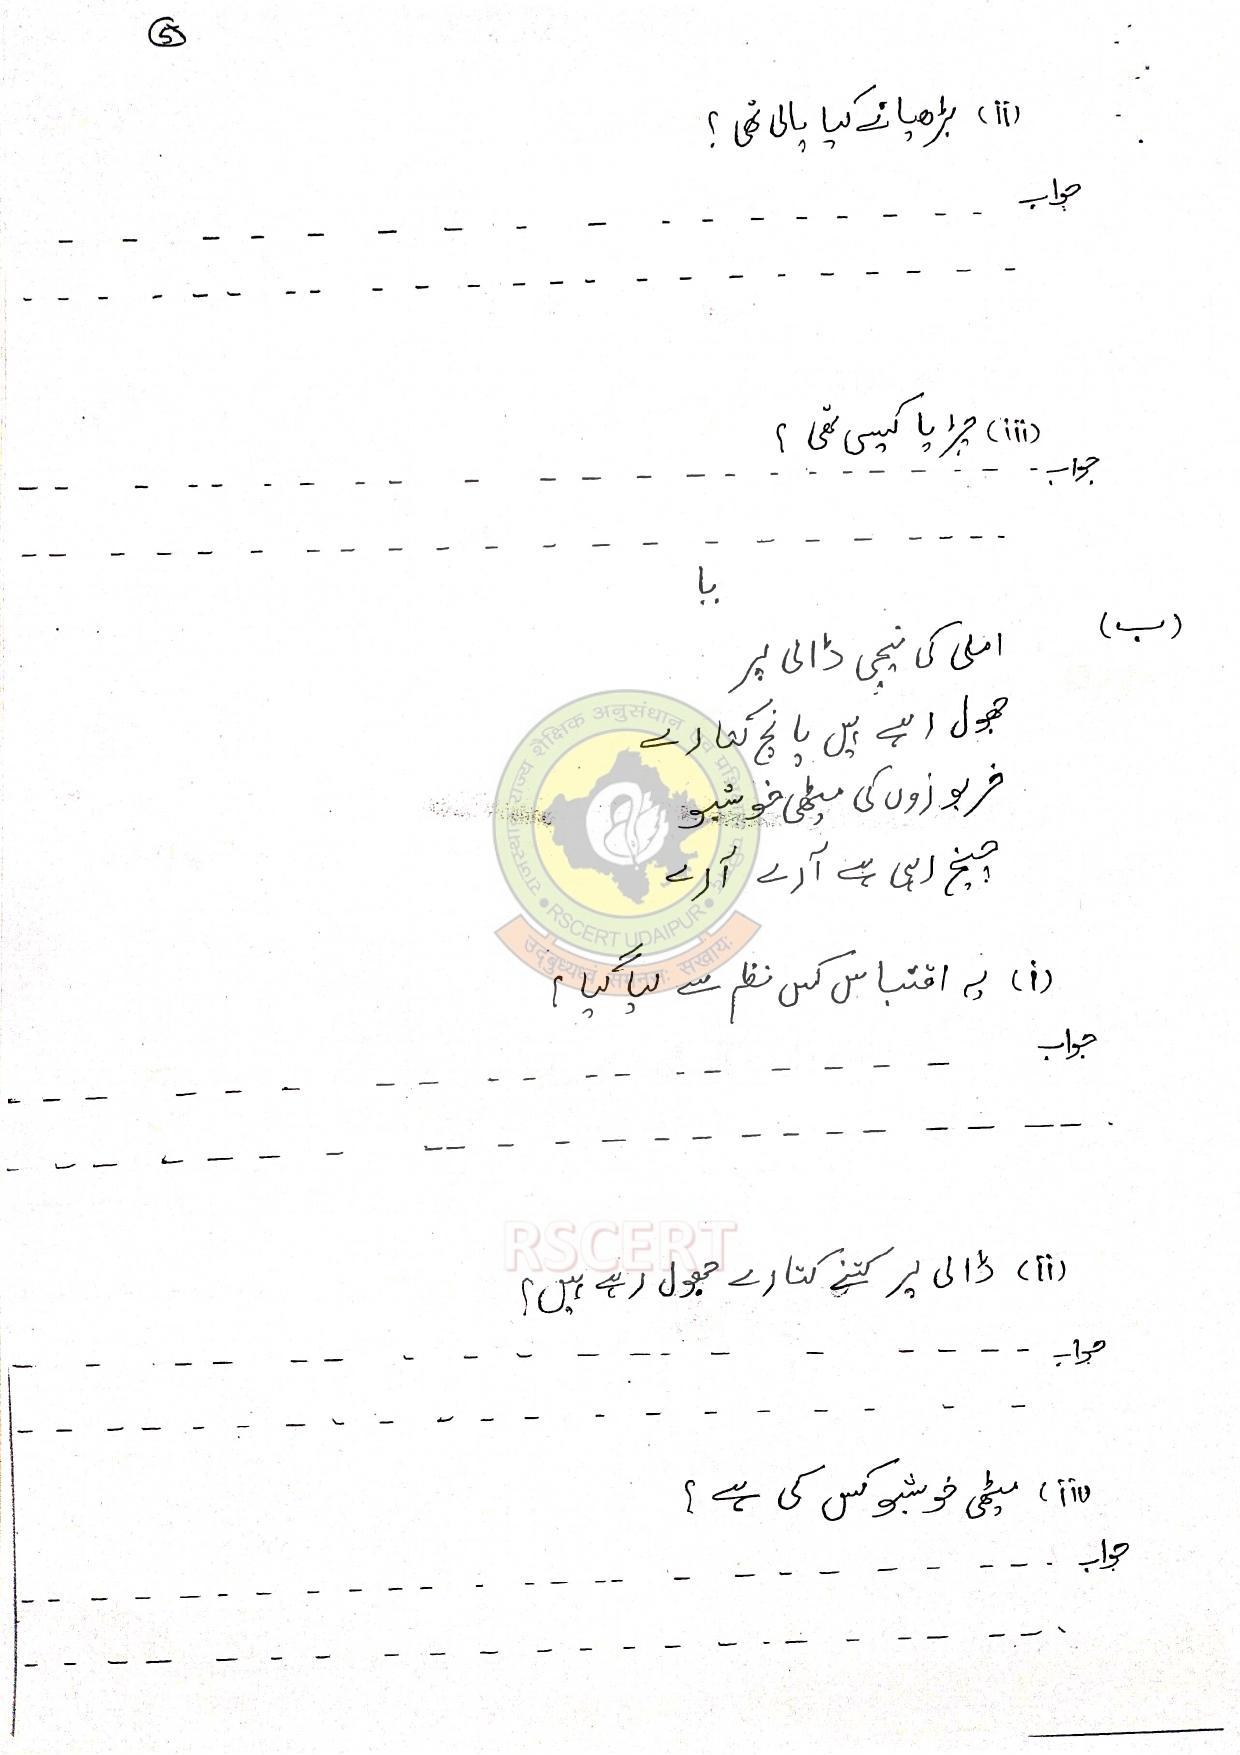 5
(ii) بڑھیا نے کیا پالی تھی ؟
جواب
(iii) چڑیا کیسی تھی ؟
جواب
یا
(ب)
املی کی نیچی ڈالی پر
جھول رہے ہیں پانچ کتارے
خربوزوں کی میٹھی خوشبو
چیخ رہی ہے آرے آرے
(i) یہ اقتباس کس نظم سے لیا گیا ؟
جواب
(ii) ڈالی پر کتنے کتارے جھول رہے ہیں؟
جواب
(iii) میٹھی خوشبو کس کی ہے ؟
جواب
RSCERT UDAIPUR
RSCERT